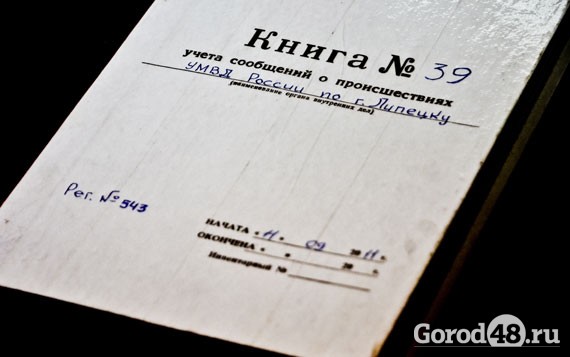 Книга № 39
учета сообщений о происшествиях
УМВД России по г. Липецку
(наименование органа внутренних дел)
Рег. № 543
НАЧАТА « 11 » 09 20 11 г.
ОКОНЧЕНА « » 20 г.
Инвентарный №
Gorod48.ru